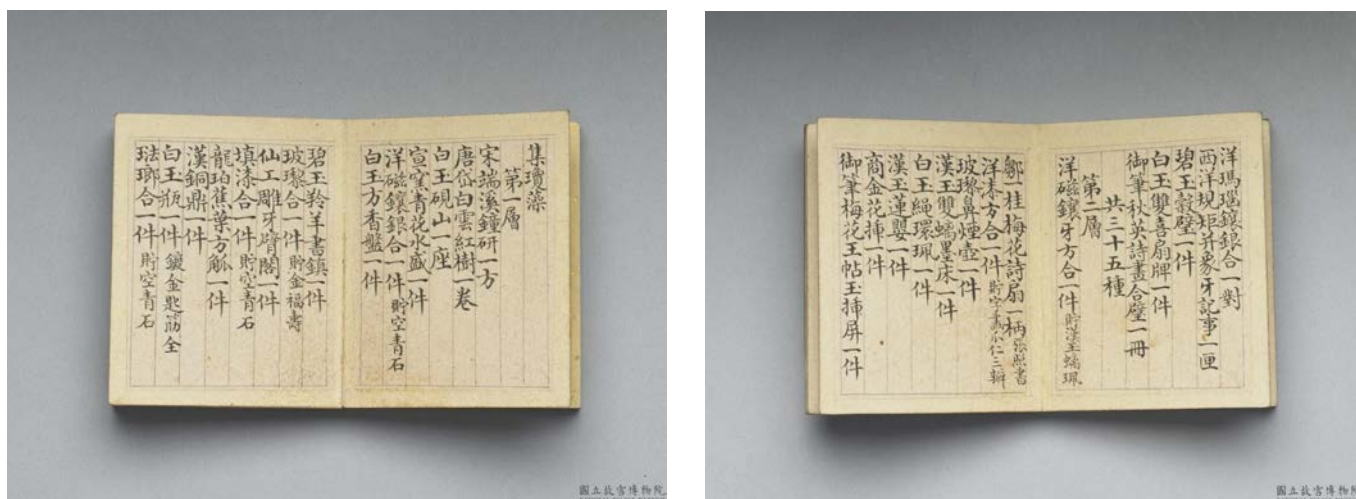 集瓊藻
第一層
宋端溪鐘研一方
唐岱白雲紅樹一卷
白玉硯山一座
宣窯青花水盛一件
洋磁鑲銀合一件 貯空青石
白玉方香盤一件
碧玉羚羊書鎮一件
玻瓈合一件 貯金福壽
仙工雕牙臂閣一件
填漆合一件 貯空青石
龍珀蕉葉方觚一件
漢銅鼎一件
白玉瓶一件 鍍金匙筯全
琺瑯合一件 貯空青石
國立故宮博物院
洋瑪瑙鑲銀合一對
西洋規矩并象牙記事一匣
碧玉穀璧一件
白玉雙喜扇牌一件
御筆秋英詩畫合璧一冊
共三十五種
第二層
洋磁鑲牙方合一件 貯漢玉螭珮
鄒一桂梅花詩扇一柄 張照書
洋漆方合一件 貯空青
玻瓈鼻煙壺一件
漢玉雙螭墨床一件
白玉繩環珮一件
漢玉蓮嬰一件
商金花揷一件
御筆梅花玉帖玉揷屏一件
國立故宮博物院